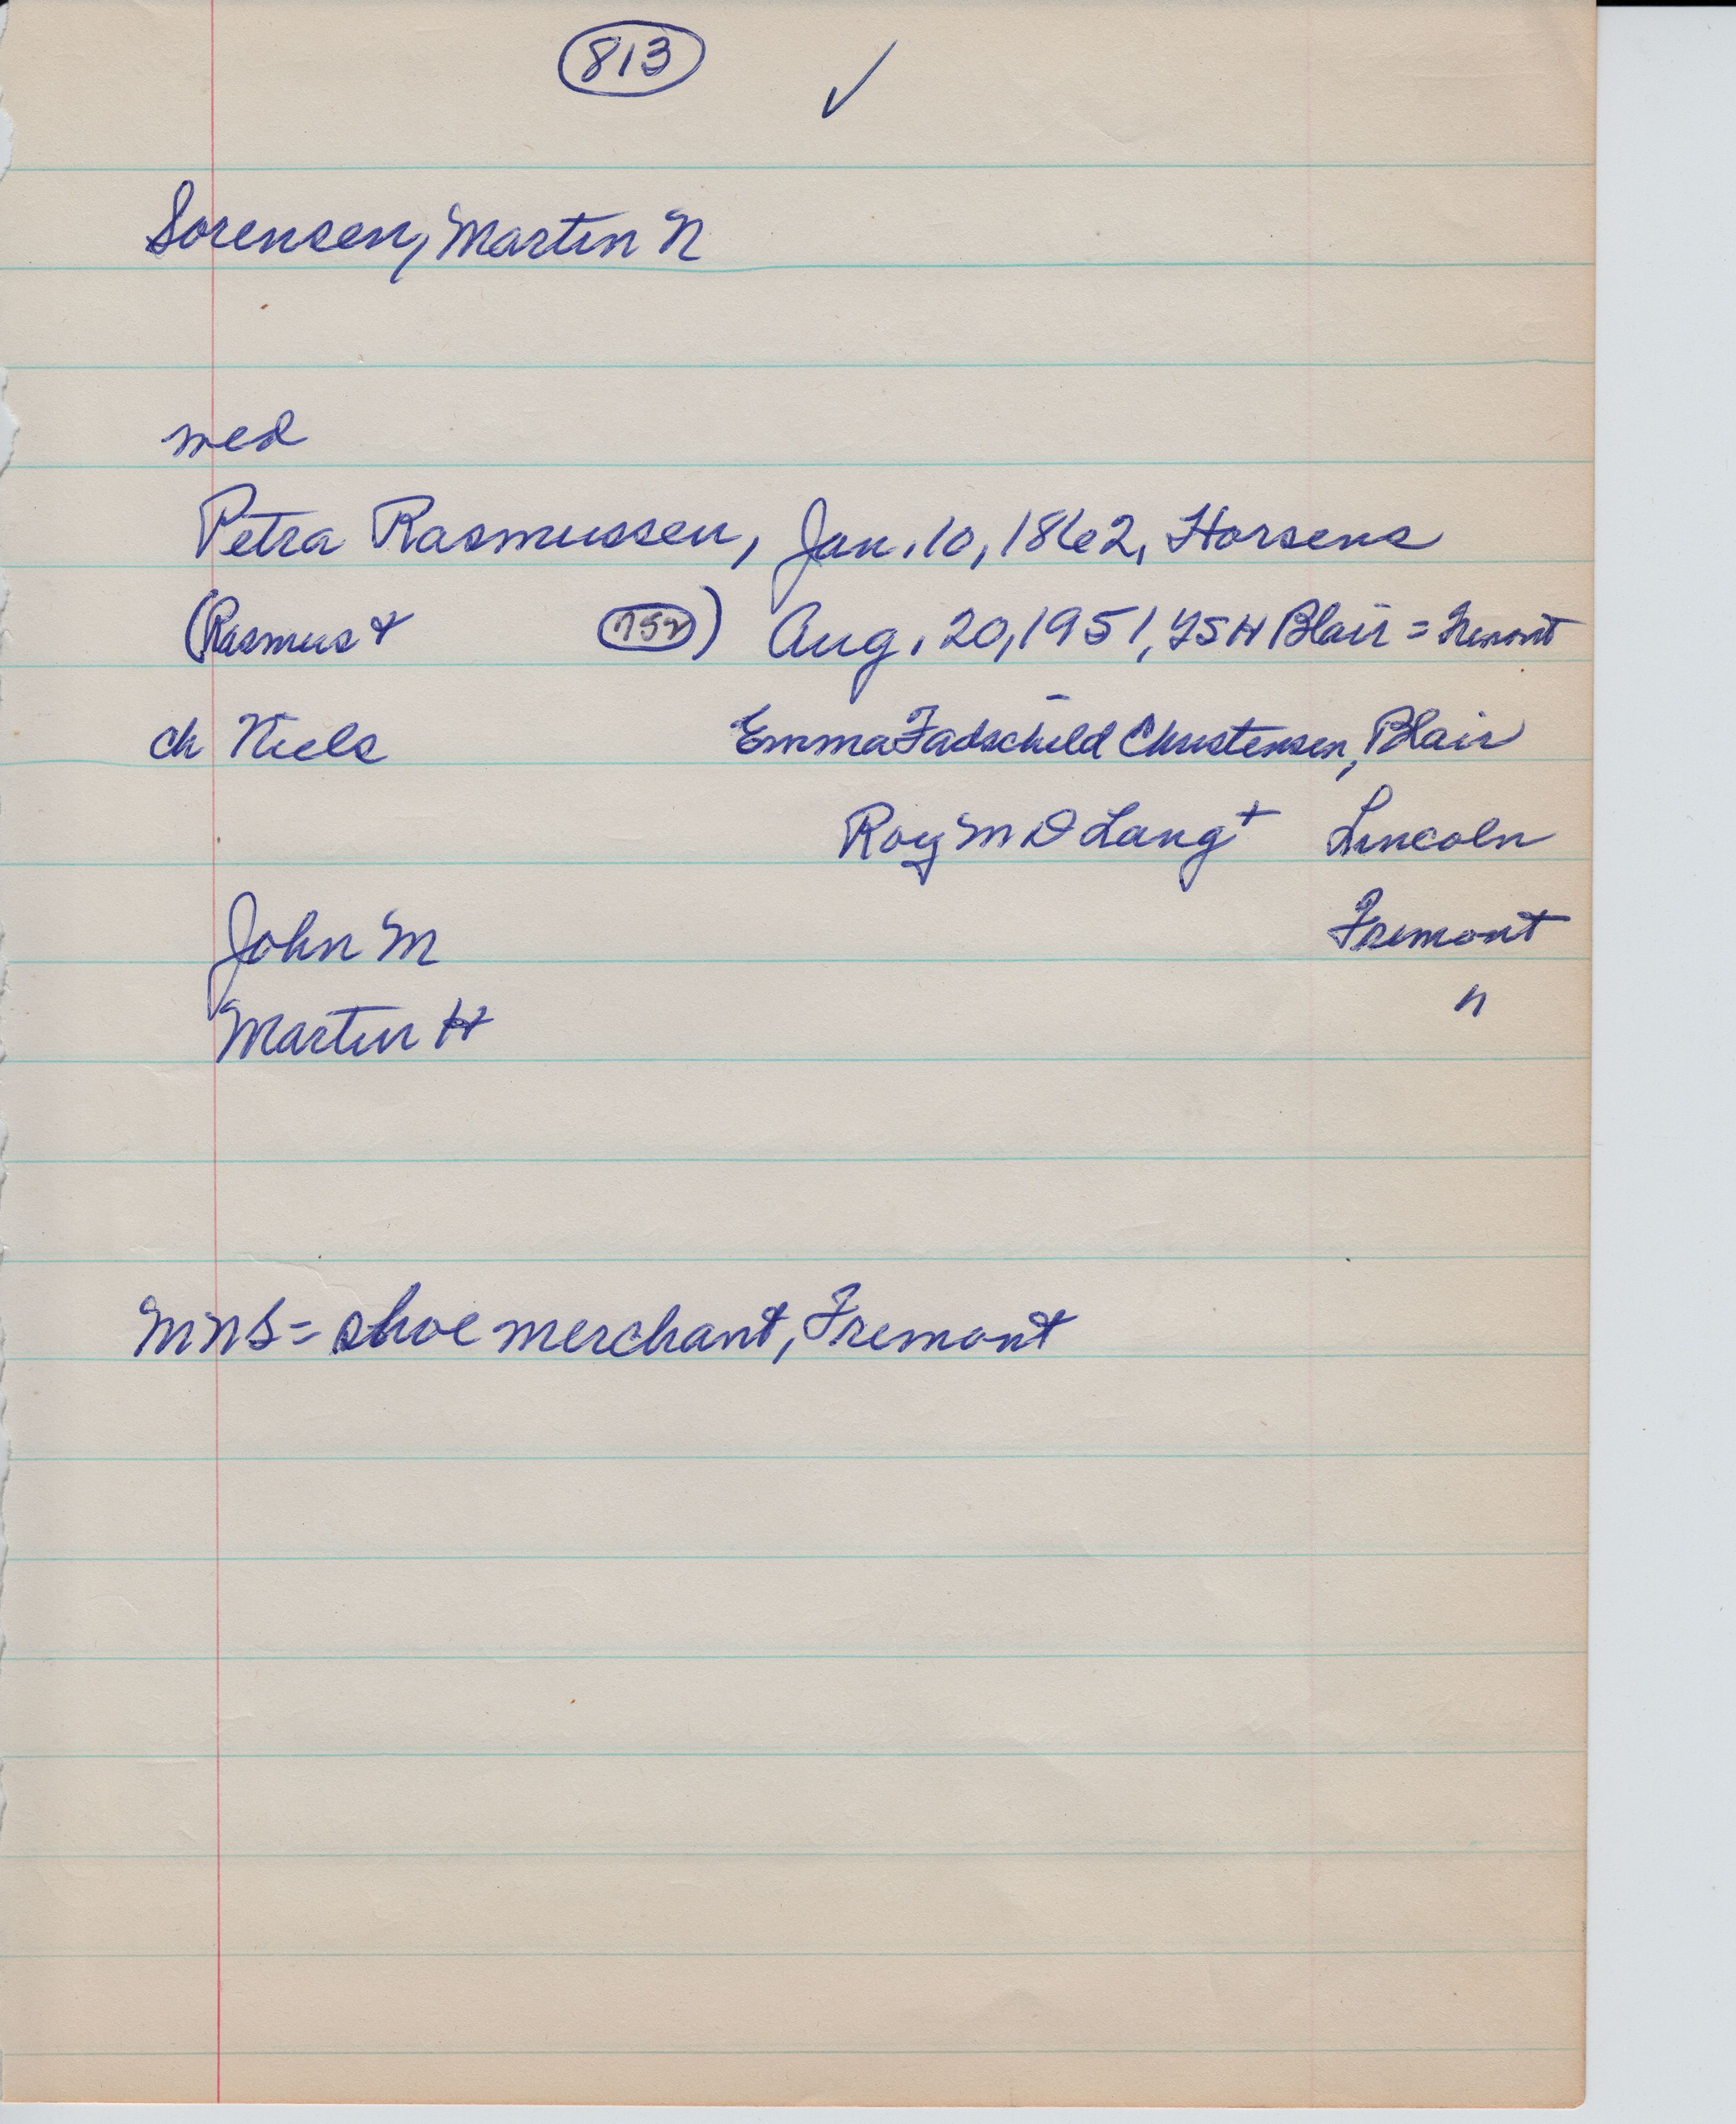 813 ✓
Sorensen, Martin N
med
Petra Rasmussen, Jan. 10, 1862, Horsens
(Rasmus & 752) Aug. 20, 1951, YSH Blair = Fremont
ch Niels Emma Fadschild Christensen, Blair
Roy M D Lang + Lincoln
John M Fremont
Martin H "
MNS = shoe merchant, Fremont